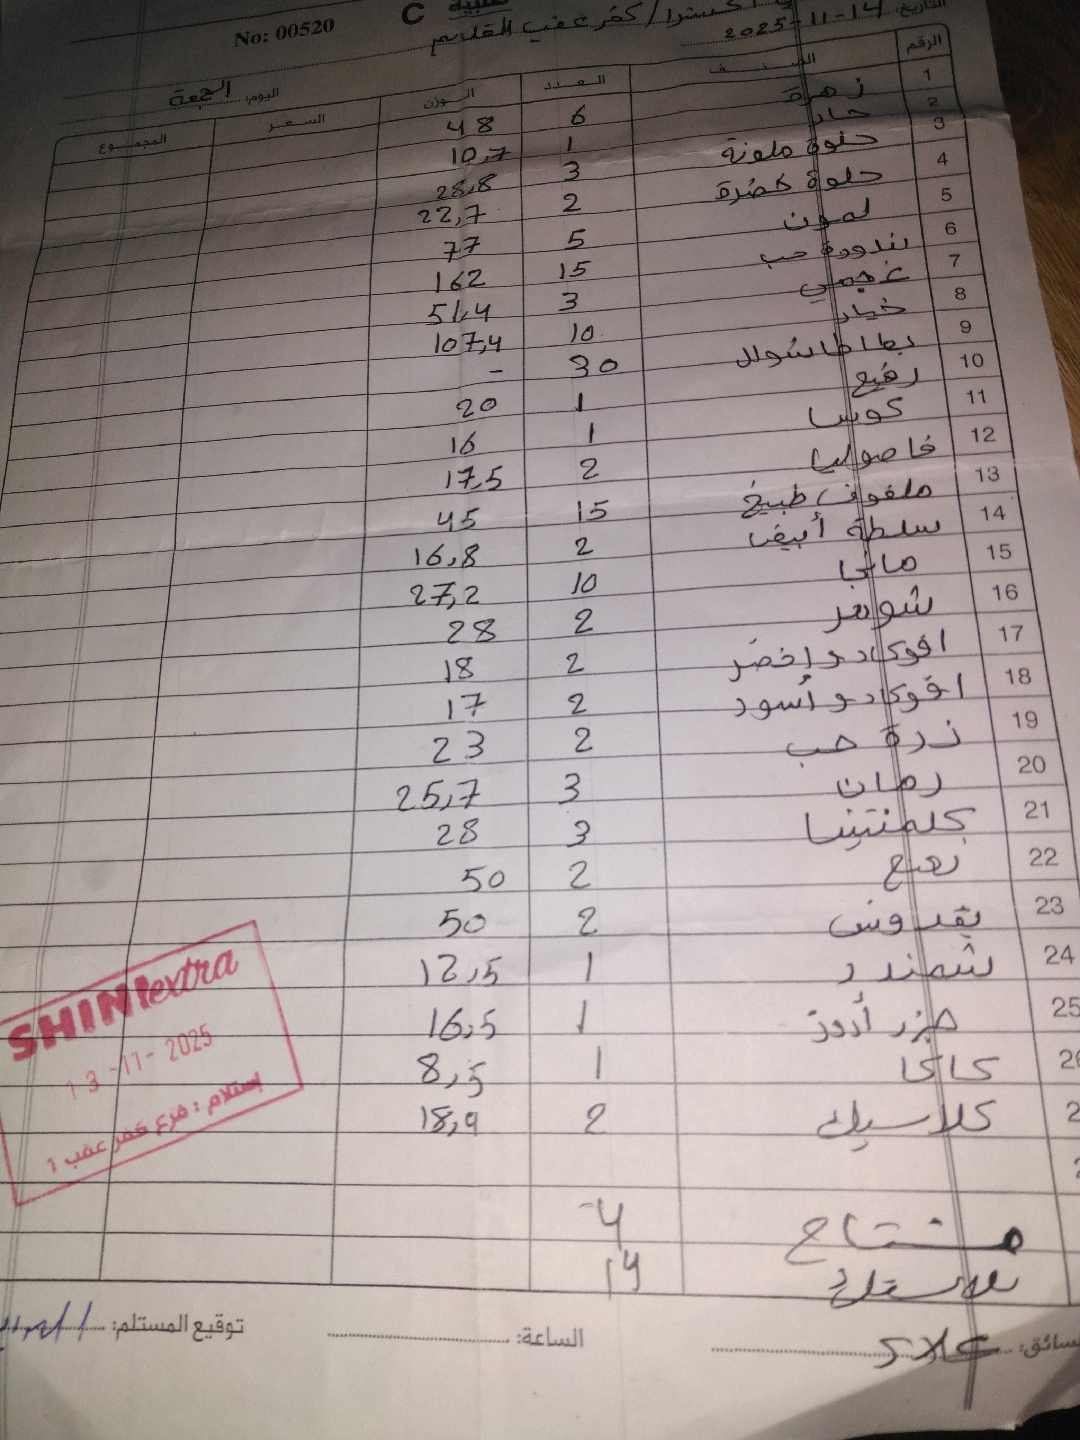 طلبية C
No: 00520
اكسترا / كفر عقب المقاسم
التاريخ: 14-11-2025
اليوم: الجمعة
الرقم الصنف العدد الوزن السعر المجموع
1 زهرة 6 48
2 حار 1 10,7
3 حلوة ملونة 3 28,8
4 حلوة خضرة 2 22,7
5 لمون 5 77
6 بندورة حب 15 162
7 عجمي 3 51,4
8 خيار 10 107,4
9 بطاطا شوال 30 -
10 رفيع 1 20
11 كوسا 1 16
12 فاصوليا 2 17,5
13 ملفوف طبيخ 15 45
14 سلطة أبيض 2 16,8
15 مانجا 10 27,2
16 شومر 2 28
17 افوكادو اخضر 2 18
18 افوكادو أسود 2 17
19 ذرة حب 2 23
20 رمان 3 25,7
21 كلمنتينا 3 28
22 نعنع 2 50
23 بقدونس 2 50
24 شمندر 1 12,5
25 جزر أدوز 1 16,5
26 كاكا 1 8,5
2 كلاسيك 2 18,9
مشتاح 4
بلاستيك 14
SHINI extra
13-11-2025
إستلام : فرع كفر عقب 1
سائق: علاء الساعة: توقيع المستلم: